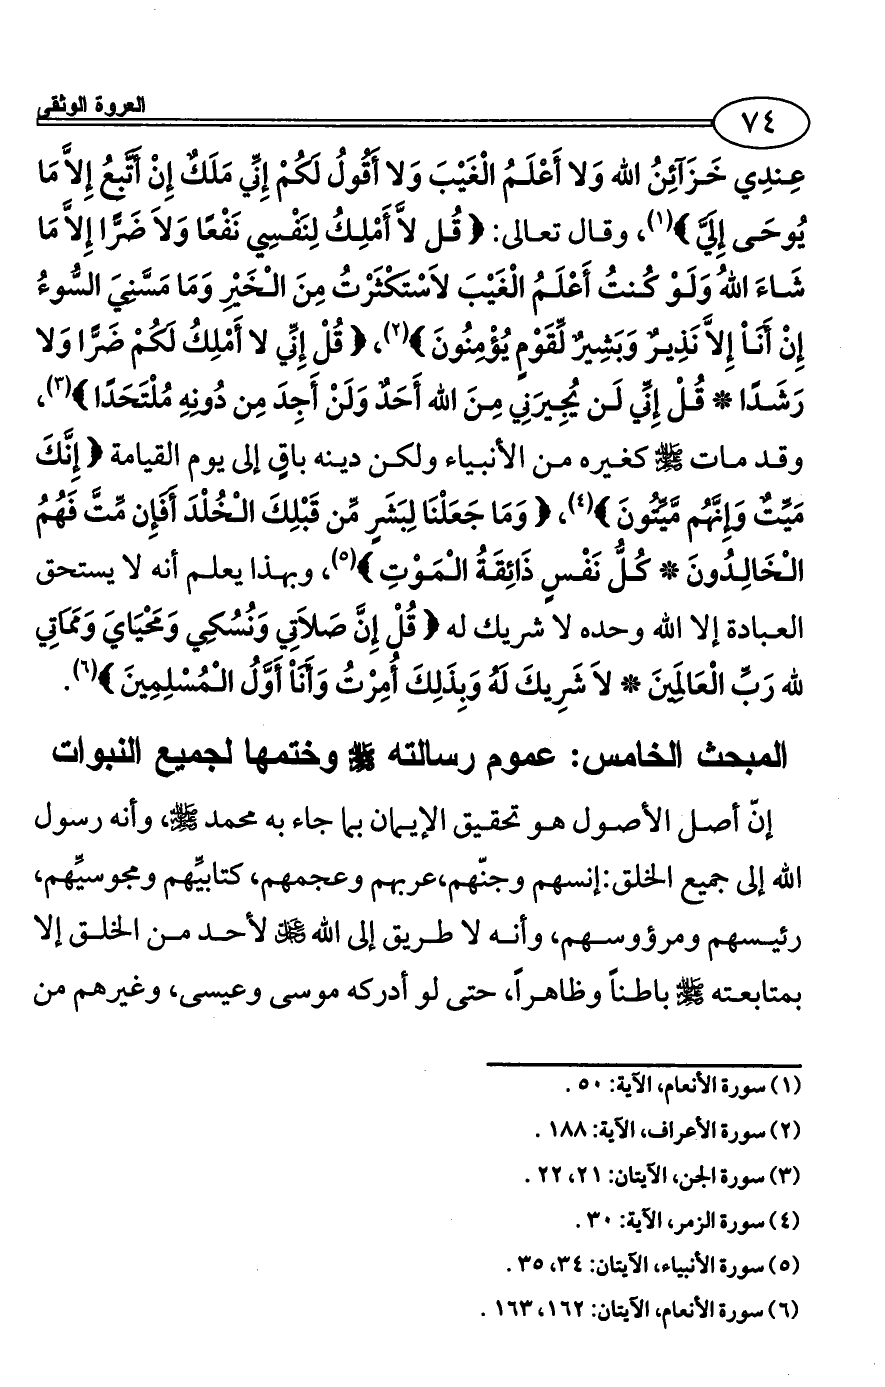 ٧٤
العروة الوثقى
عِندِي خَزَآئِنُ الله وَلا أَعْلَمُ الْغَيْبَ وَلا أَقُولُ لَكُمْ إِنِّي مَلَكٌ إِنْ أَتَّبِعُ إِلاَّ مَا
يُوحَى إِلَيَّ ﴾(١)، وقال تعالى: ﴿ قُل لاَّ أَمْلِكُ لِنَفْسِي نَفْعًا وَلاَ ضَرًّا إِلاَّ مَا
شَاءَ اللهُ وَلَوْ كُنتُ أَعْلَمُ الْغَيْبَ لاَسْتَكْثَرْتُ مِنَ الْخَيْرِ وَمَا مَسَّنِيَ السُّوءُ
إِنْ أَنَاْ إِلاَّ نَذِيرٌ وَبَشِيرٌ لِّقَوْمٍ يُؤْمِنُونَ ﴾(٢)، ﴿ قُلْ إِنِّي لا أَمْلِكُ لَكُمْ ضَرًّا وَلا
رَشَدًا * قُلْ إِنِّي لَن يُجِيرَنِي مِنَ الله أَحَدٌ وَلَنْ أَجِدَ مِن دُونِهِ مُلْتَحَدًا ﴾(٣)،
وقد مات ﷺ كغيره من الأنبياء ولكن دينه باقٍ إلى يوم القيامة ﴿ إِنَّكَ
مَيِّتٌ وَإِنَّهُم مَّيِّتُونَ ﴾(٤)، ﴿ وَمَا جَعَلْنَا لِبَشَرٍ مِّن قَبْلِكَ الْخُلْدَ أَفَإِن مِّتَّ فَهُمُ
الْخَالِدُونَ * كُلُّ نَفْسٍ ذَائِقَةُ الْمَوْتِ ﴾(٥)، وبهذا يعلم أنه لا يستحق
العبادة إلا الله وحده لا شريك له ﴿ قُلْ إِنَّ صَلاَتِي وَنُسُكِي وَمَحْيَايَ وَمَمَاتِي
لله رَبِّ الْعَالَمِينَ * لاَ شَرِيكَ لَهُ وَبِذَلِكَ أُمِرْتُ وَأَنَاْ أَوَّلُ الْمُسْلِمِينَ ﴾(٦).
المبحث الخامس: عموم رسالته ﷺ وختمها لجميع النبوات
إنّ أصل الأصول هو تحقيق الإيمان بما جاء به محمد ﷺ، وأنه رسول
الله إلى جميع الخلق: إنسهم وجنّهم، عربهم وعجمهم، كتابيِّهم ومجوسيِّهم،
رئيسهم ومرؤوسهم، وأنه لا طريق إلى الله ﷻ لأحد من الخلق إلا
بمتابعته ﷺ باطناً وظاهراً، حتى لو أدركه موسى وعيسى، وغيرهم من
(١) سورة الأنعام، الآية: ٥٠ .
(٢) سورة الأعراف، الآية: ١٨٨ .
(٣) سورة الجن، الآيتان: ٢١، ٢٢ .
(٤) سورة الزمر، الآية: ٣٠ .
(٥) سورة الأنبياء، الآيتان: ٣٤، ٣٥ .
(٦) سورة الأنعام، الآيتان: ١٦٢، ١٦٣ .